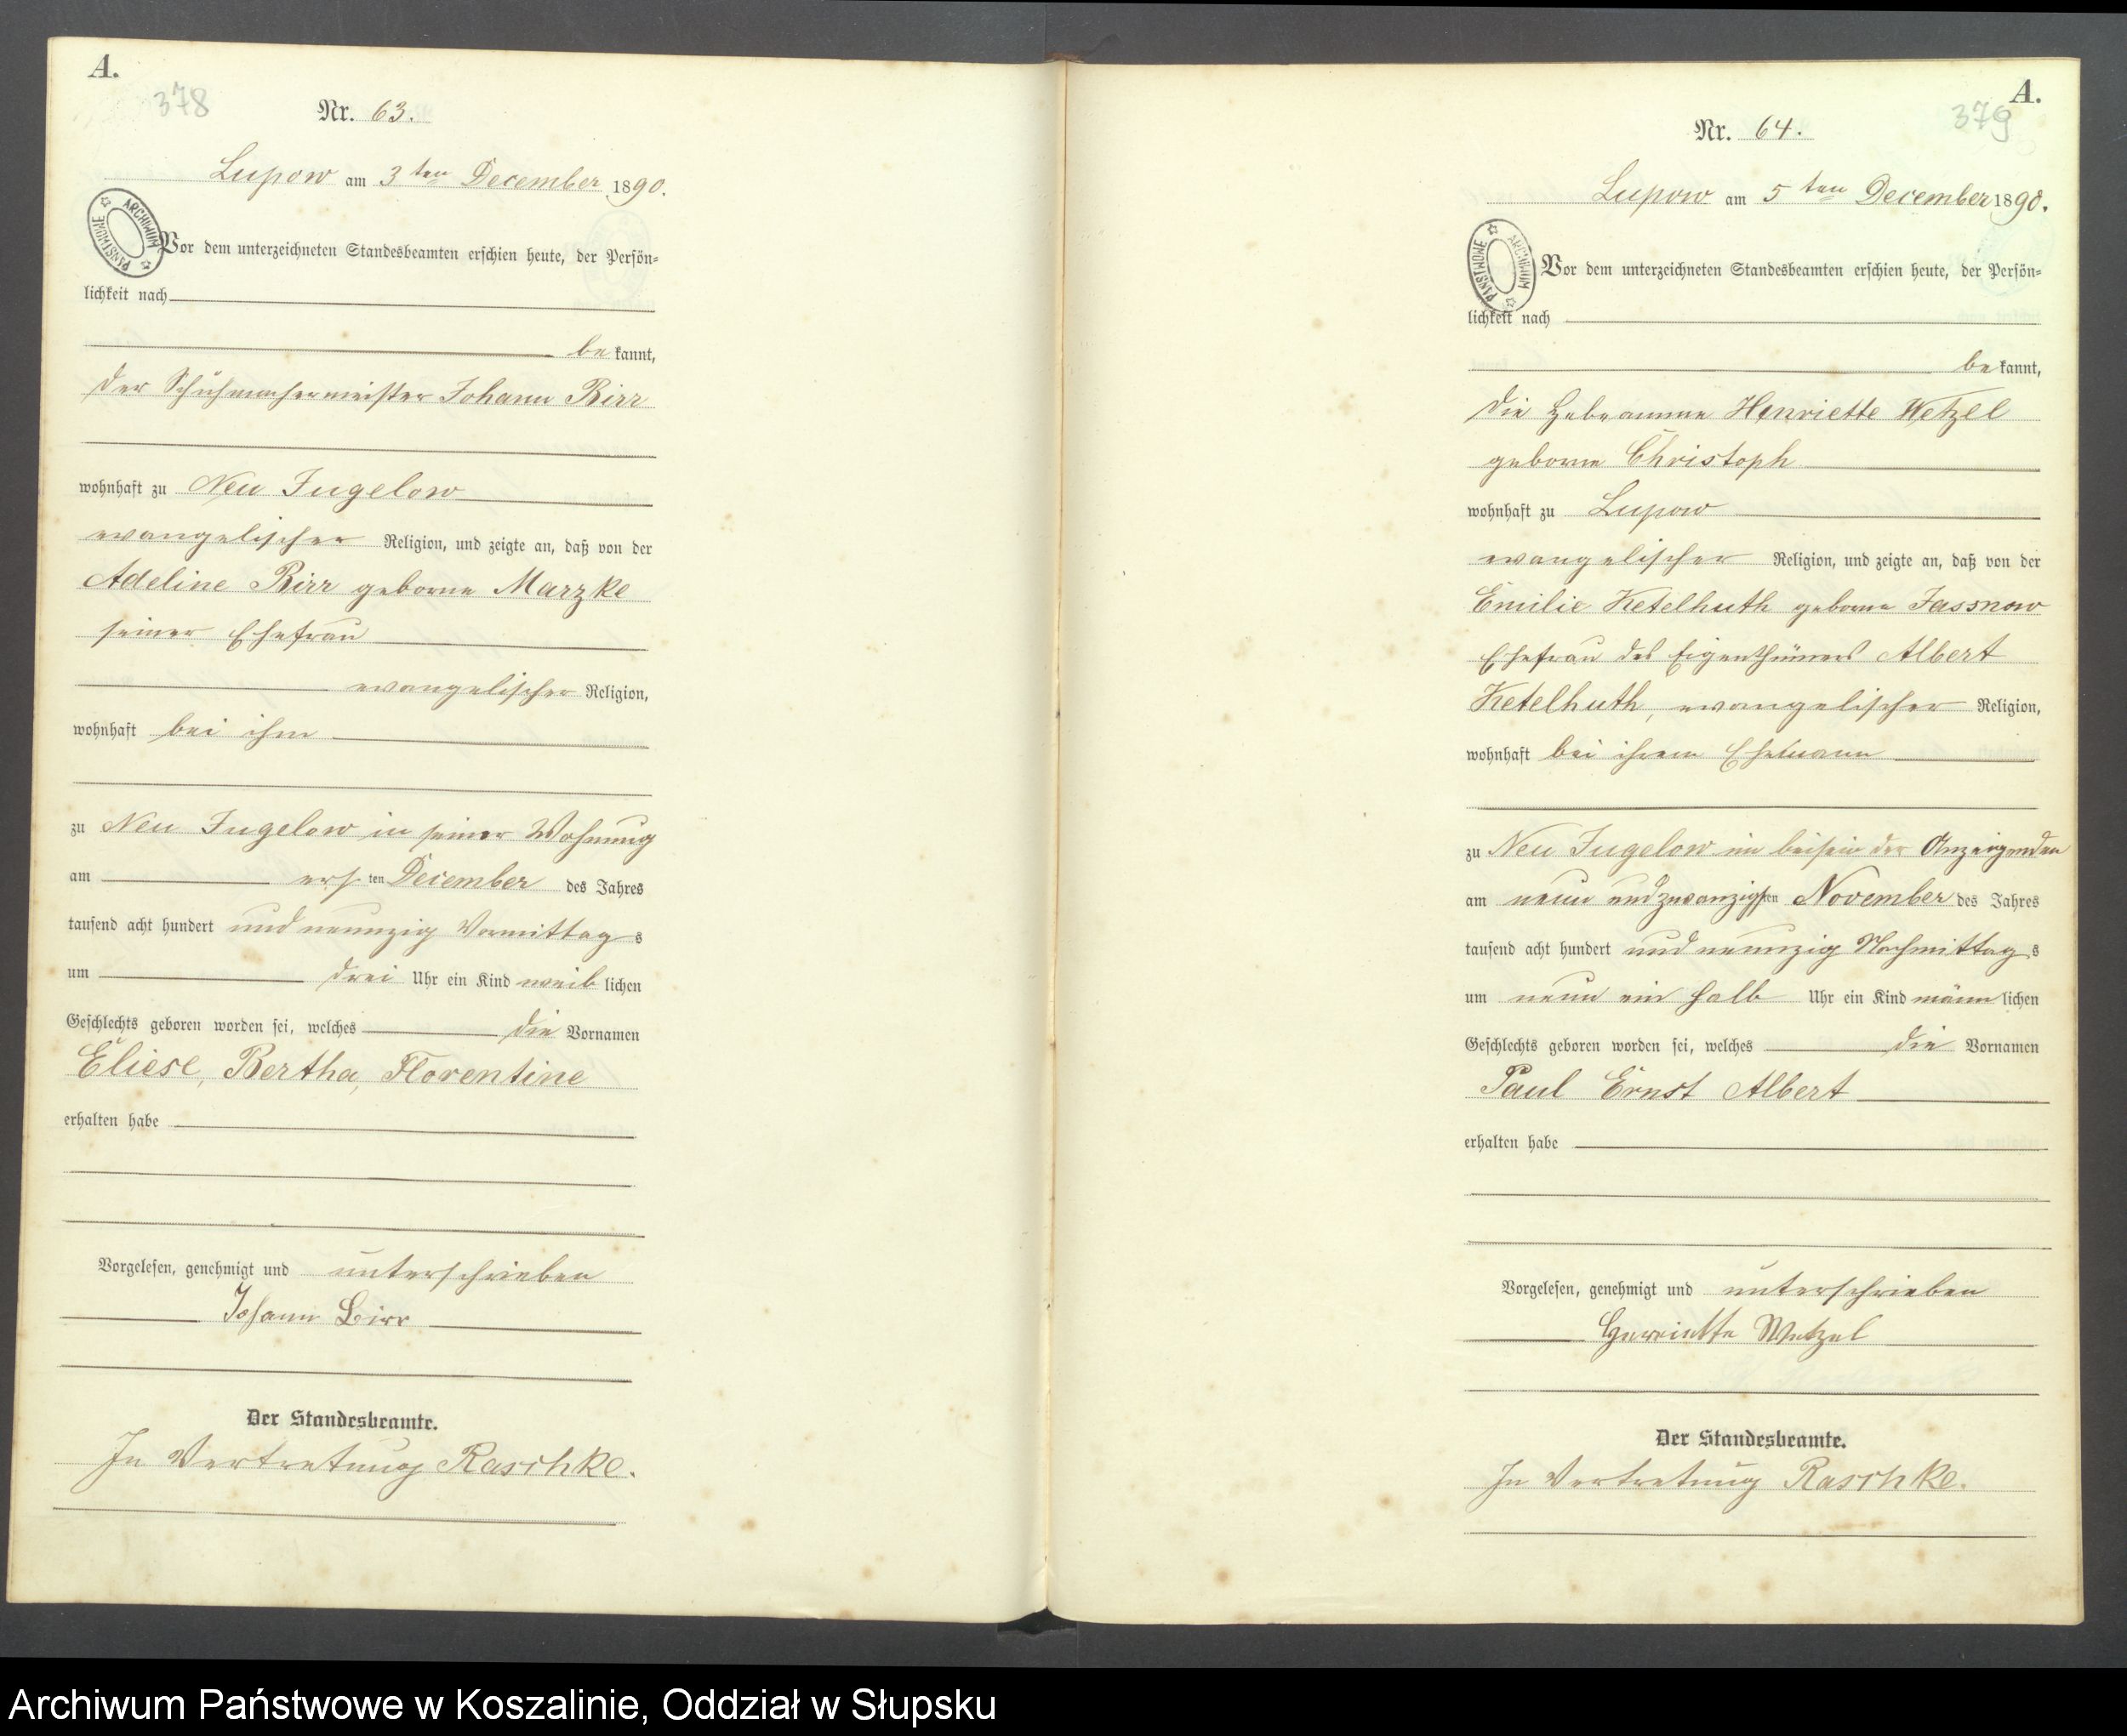 A.
378
Nr. 63.
Lupow am 3ten December 1890.
ARCHIWUM PAŃSTWOWE
Vor dem unterzeichneten Standesbeamten erschien heute, der Persön=
lichkeit nach
bekannt,
der Schuhmachermeister Johann Birr
wohnhaft zu Neu Jugelow
evangelischer Religion, und zeigte an, daß von der
Adeline Birr geborne Marzke
seiner Ehefrau
evangelischer Religion,
wohnhaft bei ihm
zu Neu Jugelow in seiner Wohnung
am ersten December des Jahres
tausend acht hundert und neunzig Vormittags
um drei Uhr ein Kind weiblichen
Geschlechts geboren worden sei, welches die Vornamen
Eliese, Bertha, Florentine
erhalten habe
Vorgelesen, genehmigt und unterschrieben
Johann Birr
Der Standesbeamte.
In Vertretung Raschke.
A.
379
Nr. 64.
Lupow am 5ten December 1890.
ARCHIWUM PAŃSTWOWE
Vor dem unterzeichneten Standesbeamten erschien heute, der Persön=
lichkeit nach
bekannt,
die Hebeamme Henriette Wetzel
geborne Christoph
wohnhaft zu Lupow
evangelischer Religion, und zeigte an, daß von der
Emilie Ketelhuth geborne Jassnow
Ehefrau des Eigenthümers Albert
Ketelhuth, evangelischer Religion,
wohnhaft bei ihrem Ehemann
zu Neu Jugelow im beisein der Anzeigenden
am neun und zwanzigsten November des Jahres
tausend acht hundert und neunzig Nachmittags
um neun ein halb Uhr ein Kind männlichen
Geschlechts geboren worden sei, welches die Vornamen
Paul Ernst Albert
erhalten habe
Vorgelesen, genehmigt und unterschrieben
Henriette Wetzel
Der Standesbeamte.
In Vertretung Raschke.
Archiwum Państwowe w Koszalinie, Oddział w Słupsku